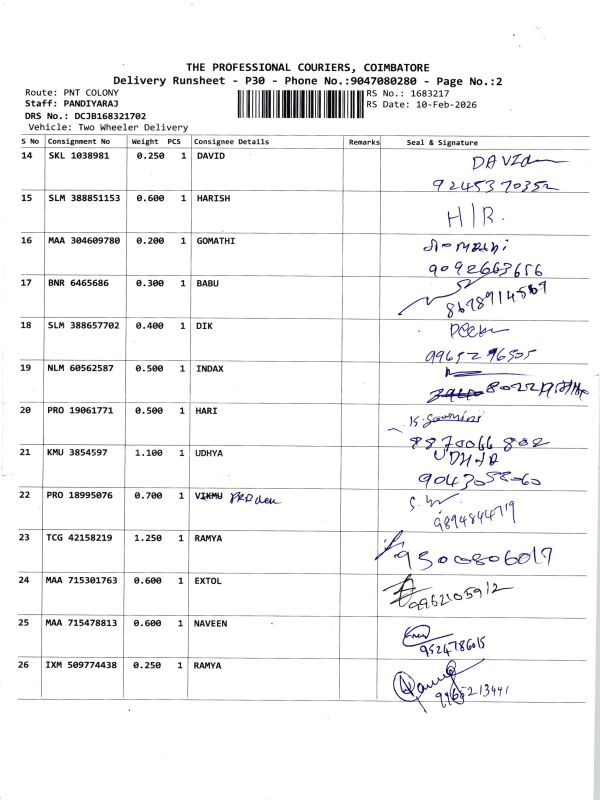 THE PROFESSIONAL COURIERS, COIMBATORE
Delivery Runsheet - P30 - Phone No.:9047080280 - Page No.:2
Route: PNT COLONY
RS No.: 1683217
Staff: PANDIYARAJ
RS Date: 10-Feb-2026
DRS No.: DCJB168321702
Vehicle: Two Wheeler Delivery
S No Consignment No Weight PCS Consignee Details Remarks Seal & Signature
14 SKL 1038981 0.250 1 DAVID DAVID
9245370352
15 SLM 388851153 0.600 1 HARISH H/R.
16 MAA 304609780 0.200 1 GOMATHI
9092663656
17 BNR 6465686 0.300 1 BABU
8678914567
18 SLM 388657702 0.400 1 DIK
9965296505
19 NLM 60562587 0.500 1 INDAX
20 PRO 19061771 0.500 1 HARI
8870066802
21 KMU 3854597 1.100 1 UDHYA UDHYA
22 PRO 18995076 0.700 1 VIKMU
9894844719
23 TCG 42158219 1.250 1 RAMYA
9500806017
24 MAA 715301763 0.600 1 EXTOL
9962105912
25 MAA 715478813 0.600 1 NAVEEN
9524786015
26 IXM 509774438 0.250 1 RAMYA
9965213441